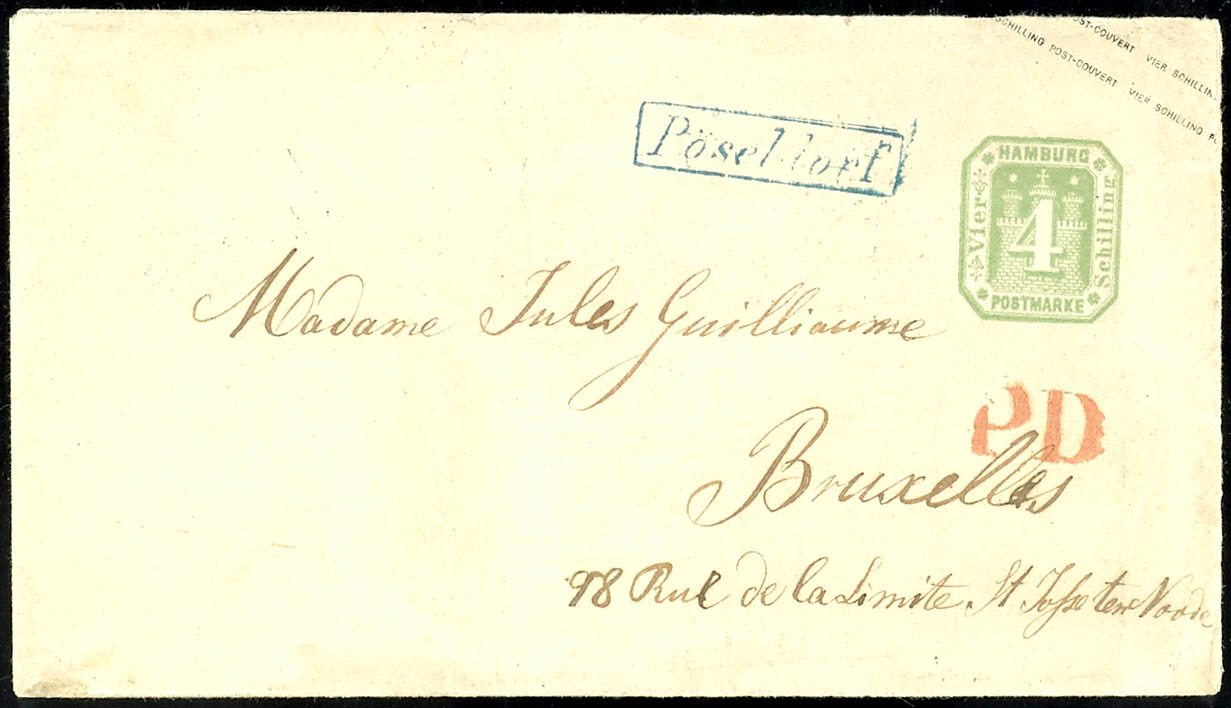 SCHILLING POST-COUVERT VIER SCHILLING
OST-COUVERT VIER SCHILLIN
Pöseldorf
HAMBURG
Vier
4
Schilling
POSTMARKE
Madame Jules Guilliaume
PD
Bruxelles
98 Rue de la Limite St Josse ten Noode